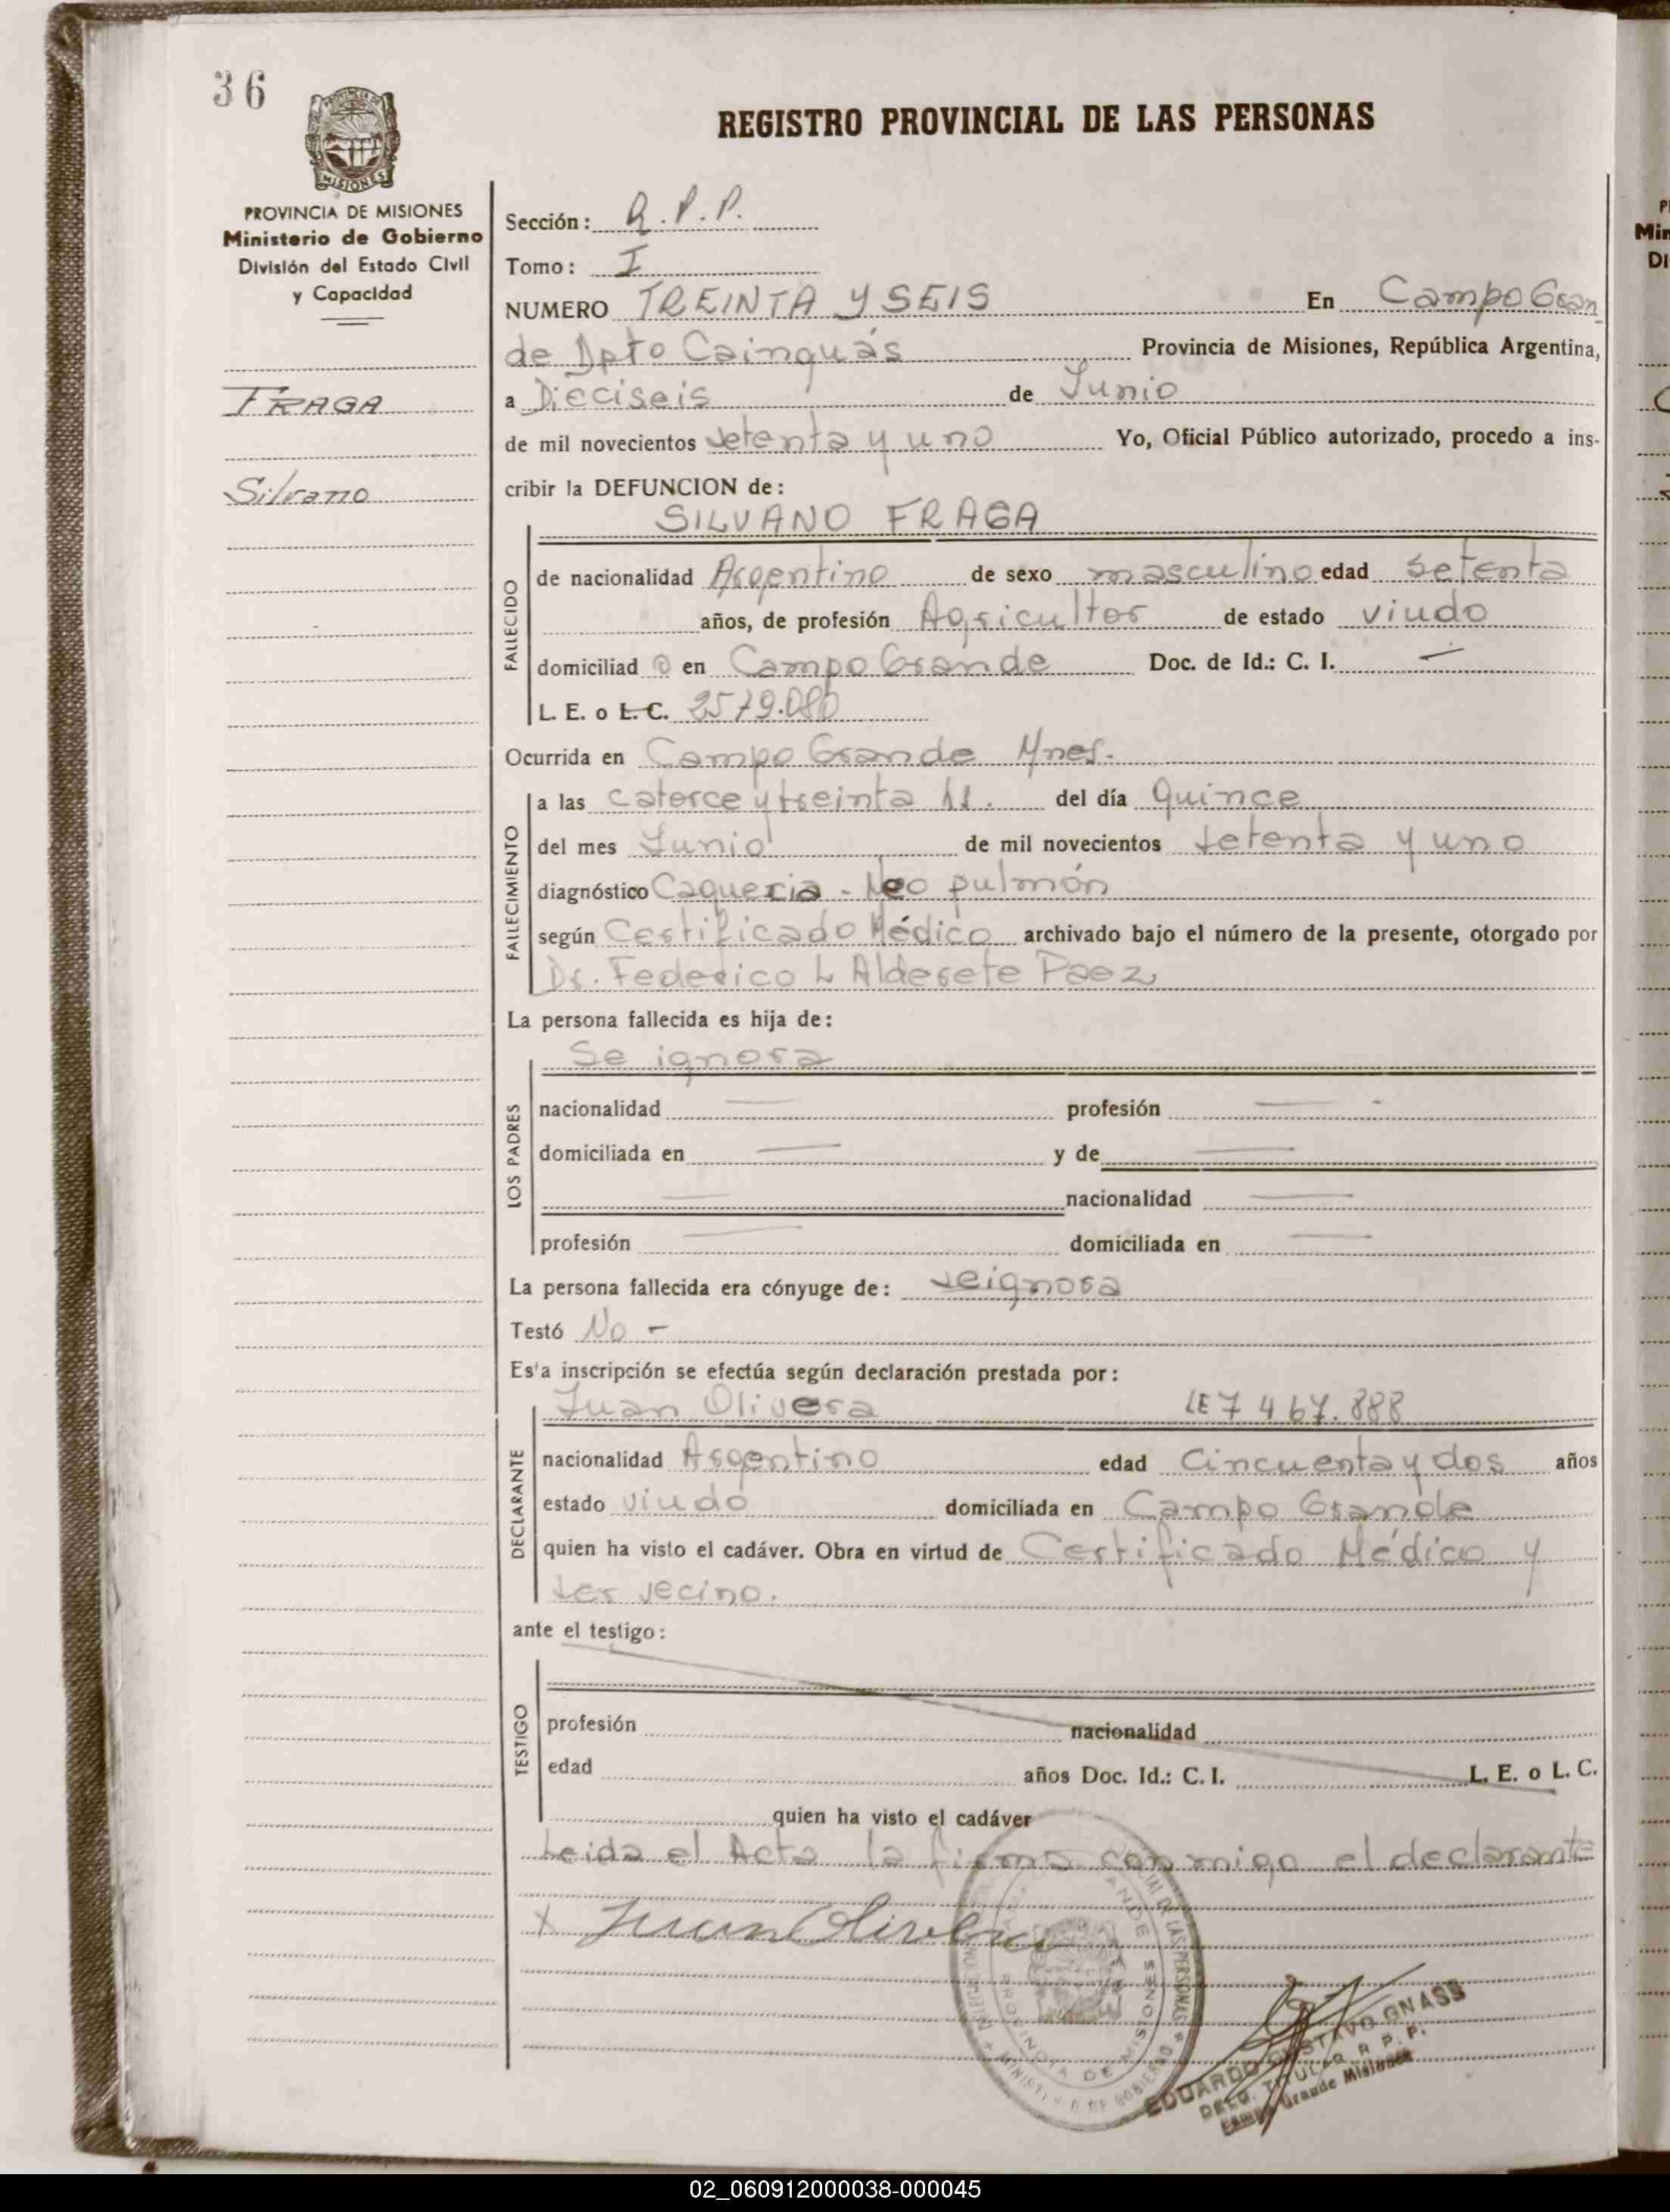 36
MISIONES
PROVINCIA DE MISIONES
Ministerio de Gobierno
División del Estado Civil
y Capacidad
FRAGA
Silvano
REGISTRO PROVINCIAL DE LAS PERSONAS
Sección: R.P.P.
Tomo: I
NUMERO TREINTA Y SEIS En Campo Gran
de Dpto Cainguás Provincia de Misiones, República Argentina,
a Dieciseis de Junio
de mil novecientos setenta y uno Yo, Oficial Público autorizado, procedo a ins-
cribir la DEFUNCION de:
SILVANO FRAGA
FALLECIDO
de nacionalidad Argentino de sexo masculino edad setenta
años, de profesión Agricultor de estado viudo
domiciliad o en Campo Grande Doc. de Id.: C. I. —
L. E. o L. C. 2579.080
Ocurrida en Campo Grande Mnes.
FALLECIMIENTO
a las catorce y treinta hs. del día Quince
del mes Junio de mil novecientos setenta y uno
diagnóstico Caquecia - Neo pulmón
según Certificado Médico archivado bajo el número de la presente, otorgado por
Dr. Federico L Alderete Paez
La persona fallecida es hija de:
LOS PADRES
Se ignora
nacionalidad — profesión — -
domiciliada en — y de —
— nacionalidad —
profesión — domiciliada en —
La persona fallecida era cónyuge de: se ignora
Testó No -
Esta inscripción se efectúa según declaración prestada por:
DECLARANTE
Juan Olivera LE 7 467.888
nacionalidad Argentino edad Cincuenta y dos años
estado viudo domiciliada en Campo Grande
quien ha visto el cadáver. Obra en virtud de Certificado Médico y
ser vecino.
ante el testigo:
TESTIGO
profesión nacionalidad
edad años Doc. Id.: C. I. L. E. o L. C.
quien ha visto el cadáver
Leida el Acta la firma conmigo el declarante
x Juan Olivera
EDUARDO GUSTAVO GNASS
DELG. TITULAR R. P. P.
Campo Grande Misiones
02_060912000038-000045